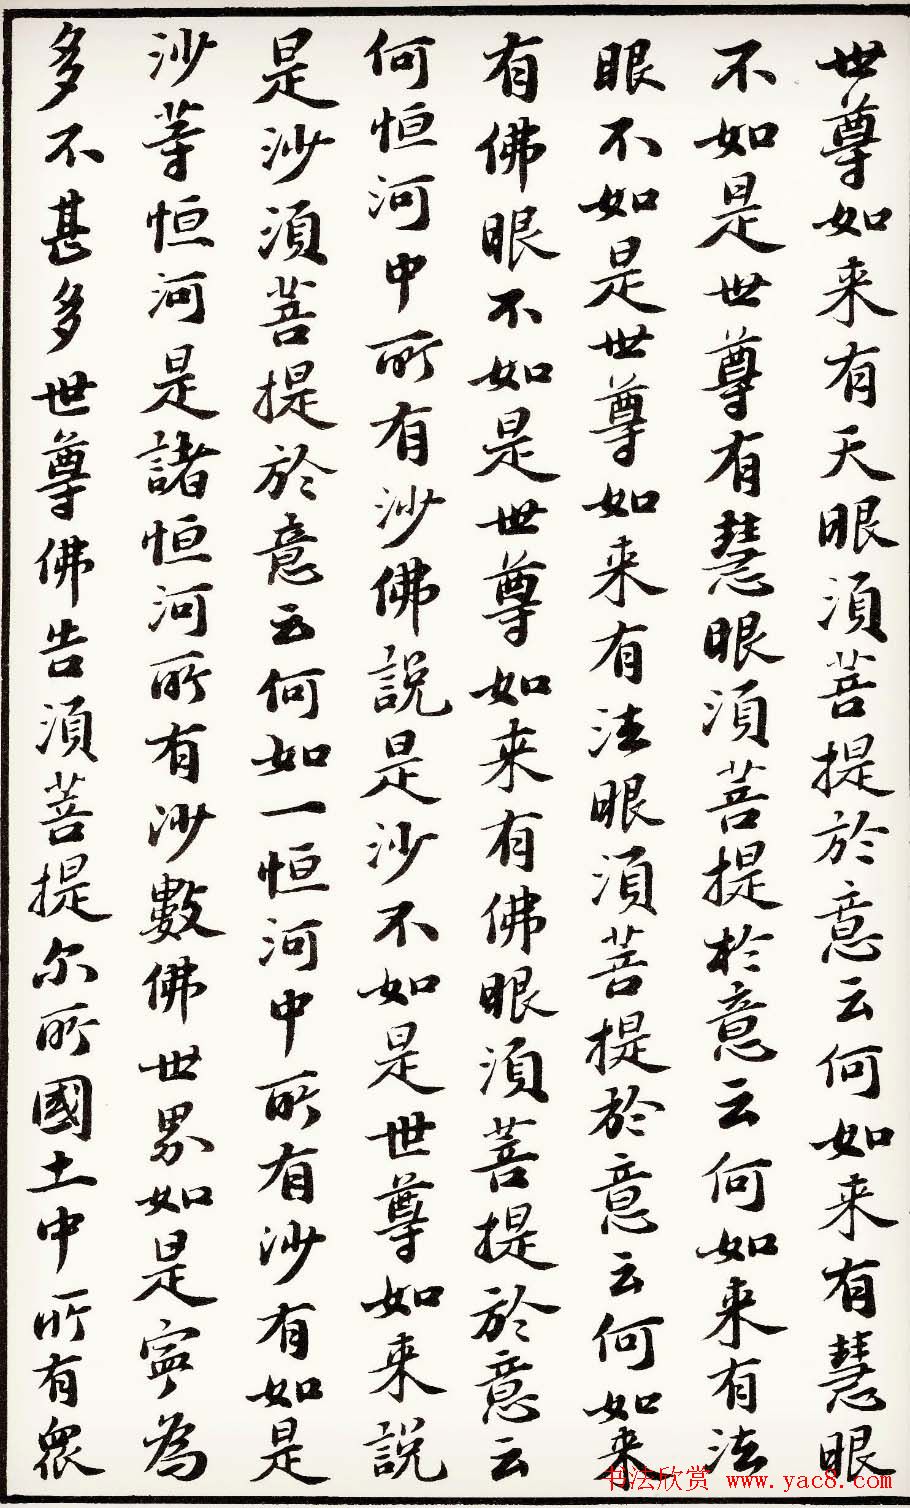 世尊如来有天眼須菩提於意云何如来有慧眼
不如是世尊有慧眼須菩提於意云何如来有法
眼不如是世尊如来有法眼須菩提於意云何如来
有佛眼不如是世尊如来有佛眼須菩提於意云
何恒河中所有沙佛說是沙不如是世尊如来說
是沙須菩提於意云何如一恒河中所有沙有如是
沙等恒河是諸恒河所有沙數佛世界如是寧為
多不甚多世尊佛告須菩提尔所國土中所有衆
书法欣赏 www.yac8.com